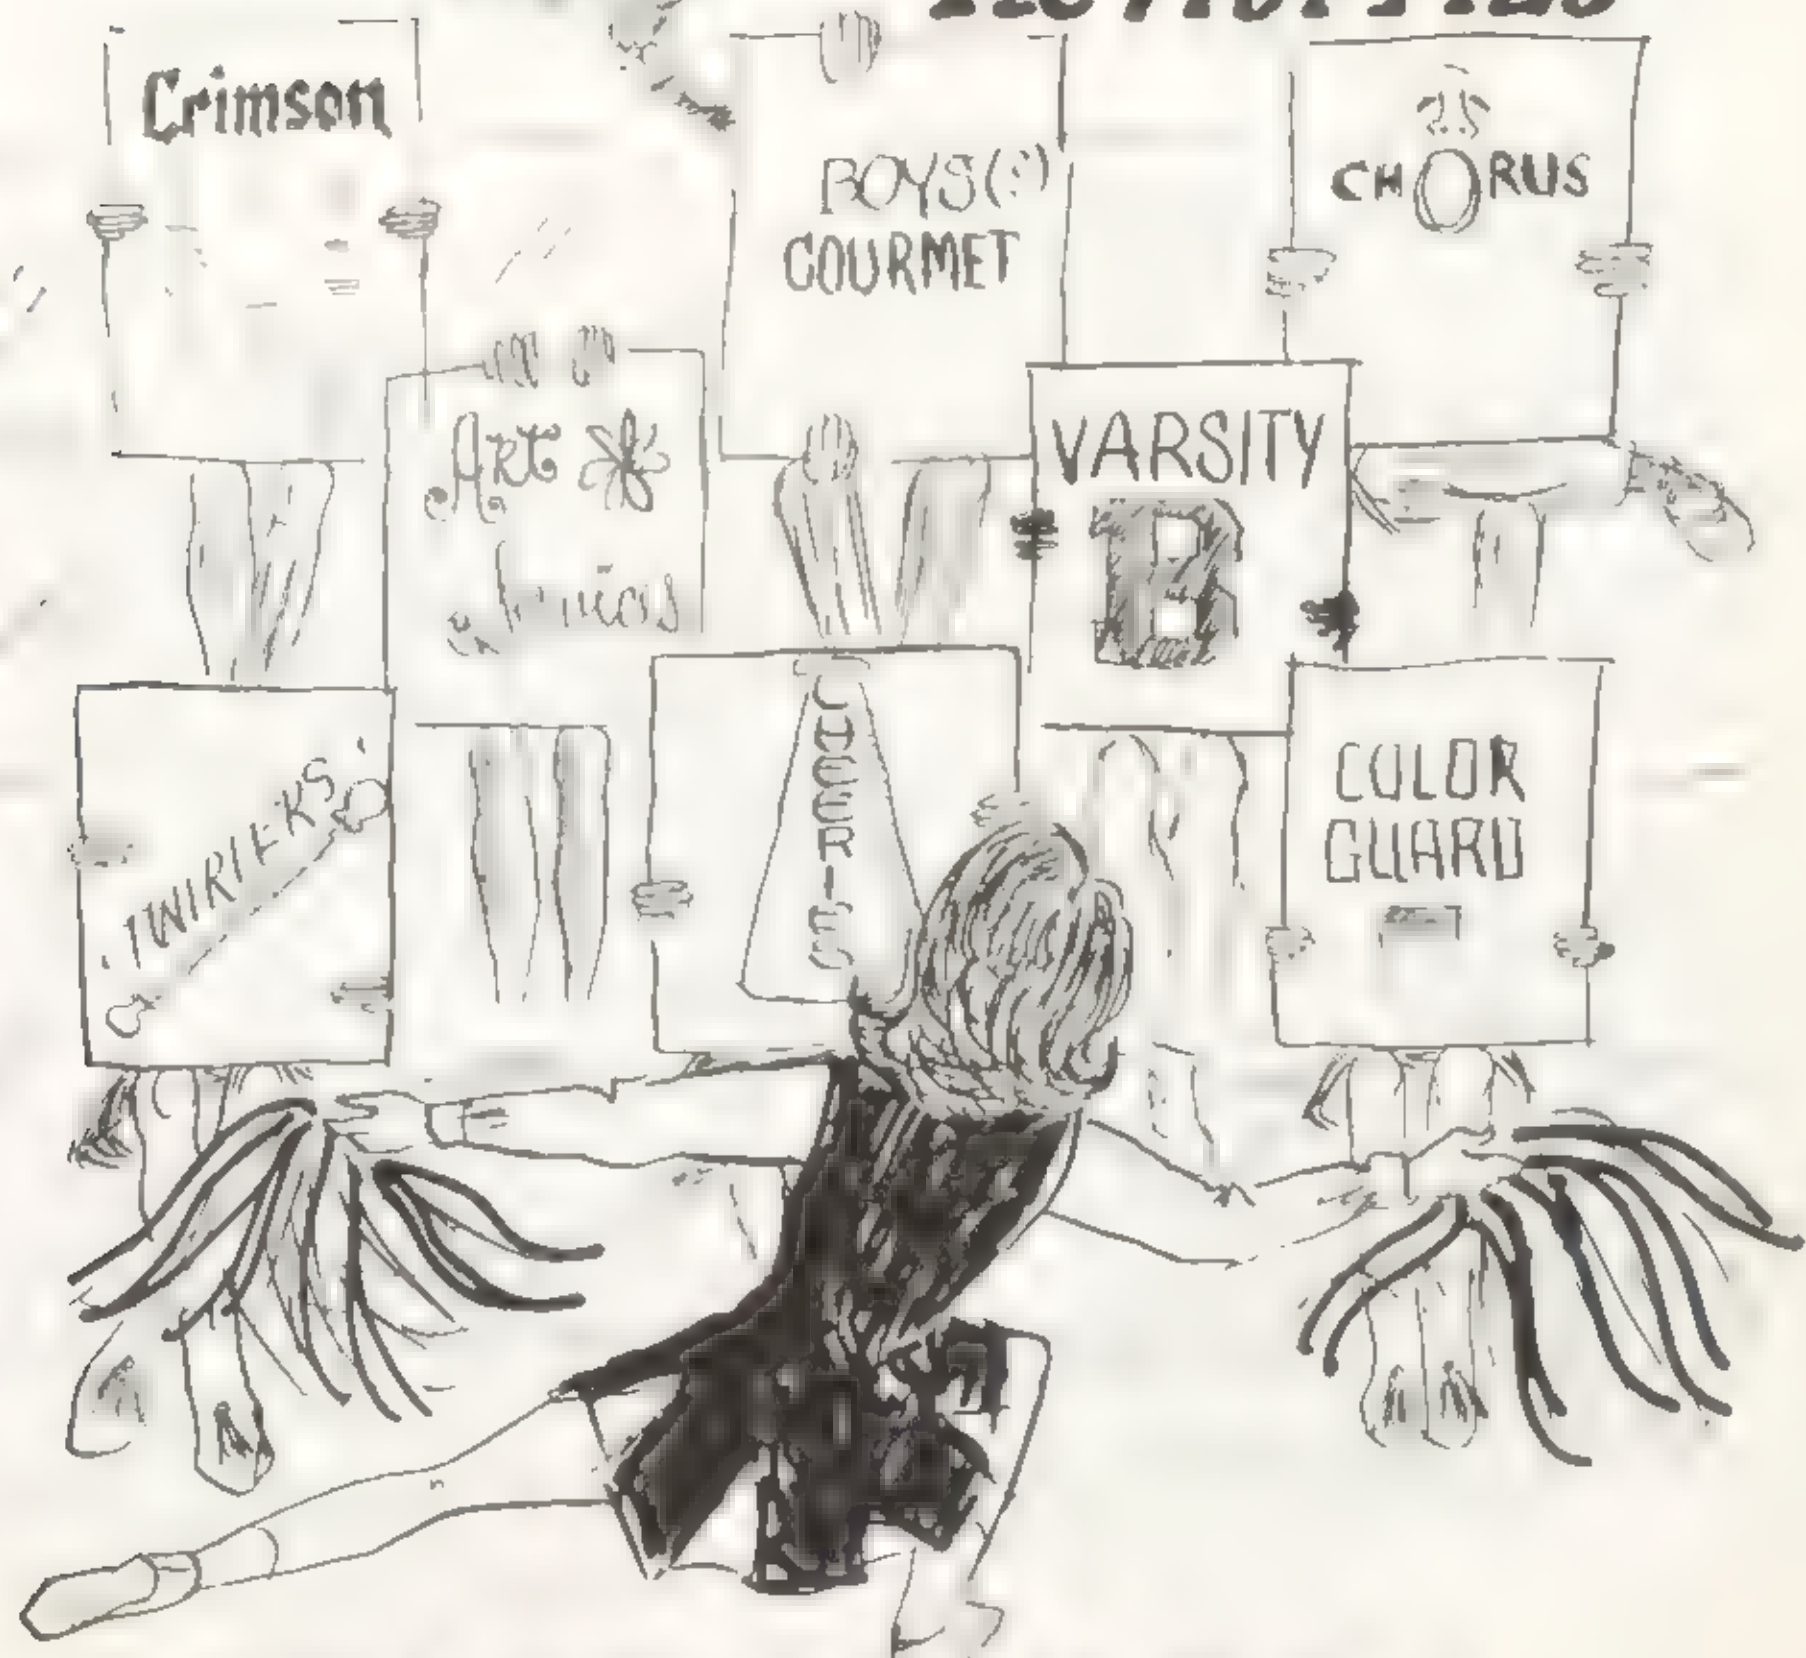 Crimson
BOYS(?)
GOURMET
CHORUS
Art
VARSITY
B
TWIRLERS
CHEERIES
COLOR
GUARD